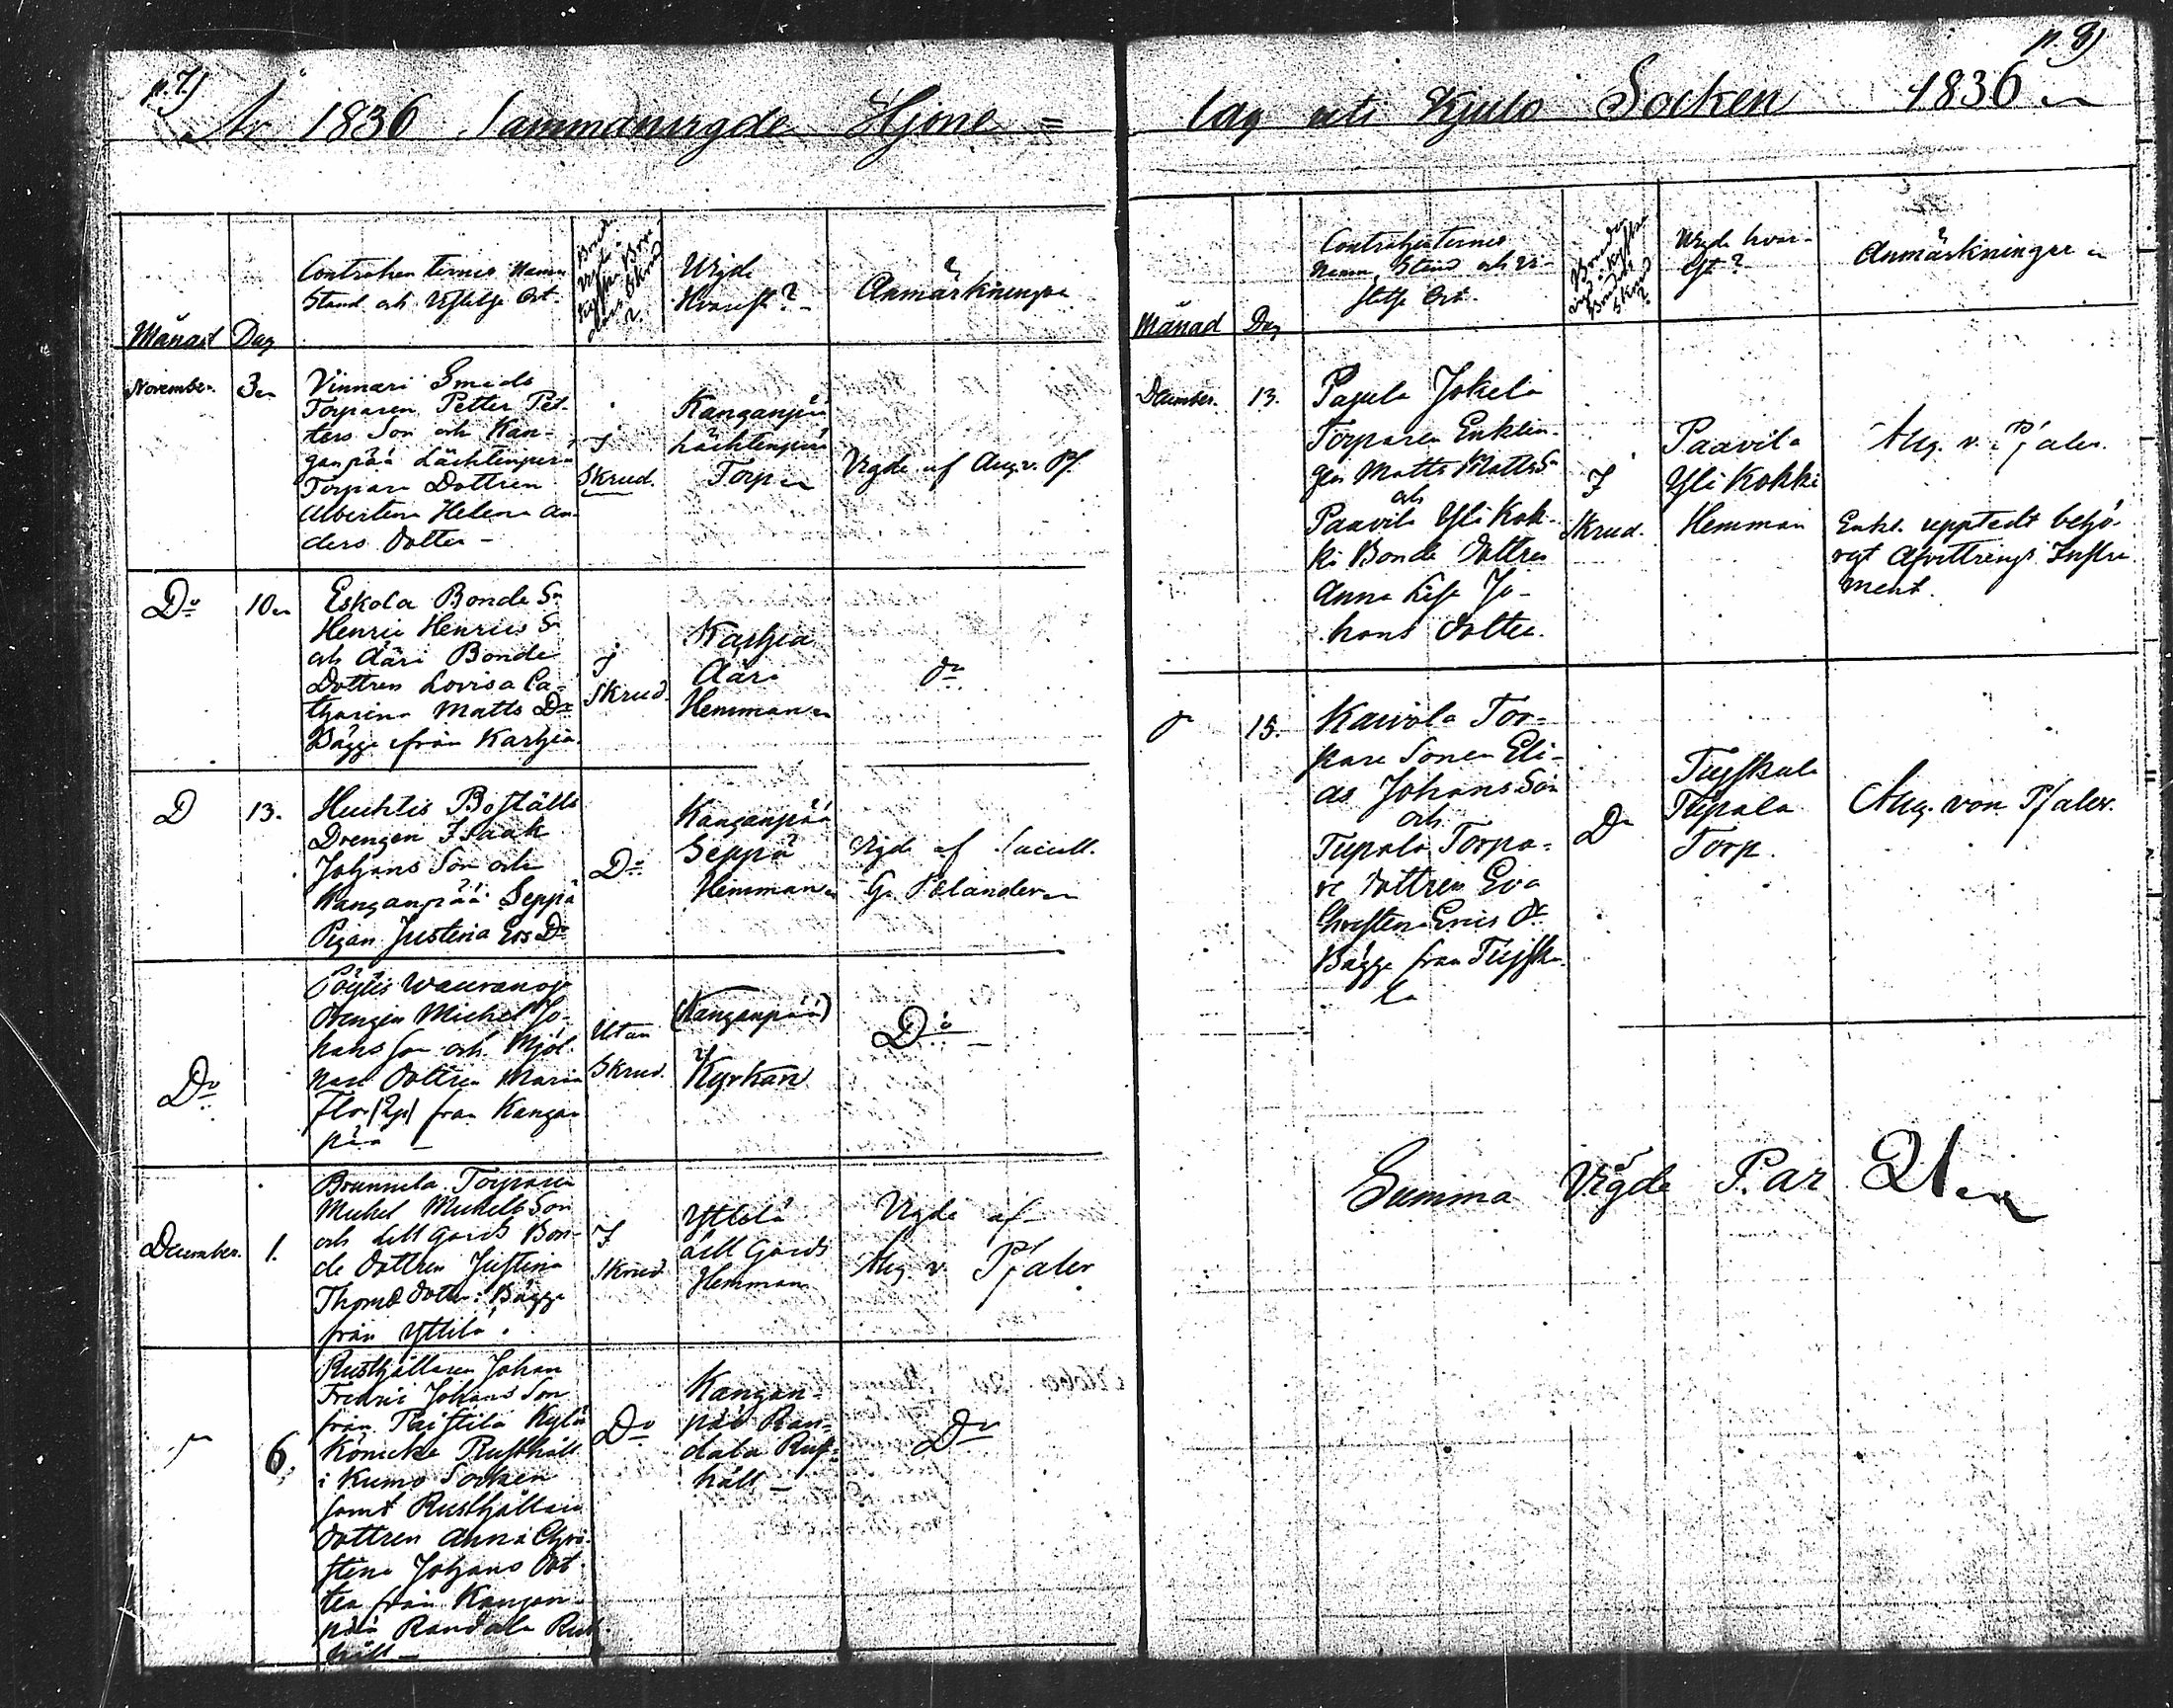 p. 7)
År 1836 Sammanvigde Hjone=
Månad
Dag
Contrahenternes Namn
Stånd och Vistelse Ort.
Vigde
Hvarest?
Anmärkningar
November.
3
Vinnari Smeds
Torparen Petter Pet-
ters Son och Kan-
ganpää Lächtenperä
Torpare Dottren
Albertina Helena An-
ders Dotter -
I
Skrud.
Kanganpää
Lächtenperä
Torp
Vigde af Aug. v. Pf.
Do
10
Eskola Bonde Sn
Henric Henrics Sn
och Ääri Bonde
Dottren Lovisa Ca-
tharina Matts Dr
Bägge från Karhia.
I
Skrud
Karhia
Ääri
Hemman
do
D
13.
Huchtis Boställs
Drengen Isaak
Johans Son och
Kanganpää Seppä
Pigan Justina Ers Dr
Do
Kanganpää
Seppä
Hemman
Vigde af
G. Polander
Do
Drengen Michel Jo-
hans Son och Mjöl-
nare Dottren Maria
Flor från Kangan
pää -
Utan
Skrud.
(Kanganpää)
Kyrkan
Do
December.
1.
Brunnila Torparen
Michel Michels Son
och Lill Gårds Bon-
de Dottren Justina
Thoms Dotter: Bägge
från Yttilä.
I
Skrud
Yttilä
Lill Gårds
Hemman
Vigde af
Aug v. Pfaler
6.
Rusthållaren Johan
Fredric Johans Son
från Paistila Kylä
Rusthåll
i Kumo Socken
samt Rusthållare
Dottren Anna Chri-
stina Johans Dot-
ter från Kangan-
pää Randala Rust
håll -
Do
Kangan-
pää Ran-
dala Rust-
håll -
Do
p. 8)
lag uti Kjulo Socken 1836
Månad
Dag
Contrahenternes
Namn, Stånd och Vi-
stelse Ort.
Vigde hvar-
est?
Anmärkningar
December.
13.
Papula Jokela
Torparen Enklin-
gen Matts Matts Sn
och
Paavila Yli Kok-
ki Bonde Dottren
Anna Lisa Jo-
hans Dotter.
I
Skrud.
Paavila
Yli Kokki
Hemman
Aug. v. Pfaler.
Enkl. upptedt behö-
rigt Afvittrings Instru
ment.
15.
Kaivola Tor-
pare Sonen Eli-
as Johans Son
och
Tupala Torpa-
re Dottren Eva
Christina Erics Dr
Bägge från Tujsku-
la
Do
Tujskula
Tupala
Torp.
Aug. von Pfaler.
Summa Vigde Par 21